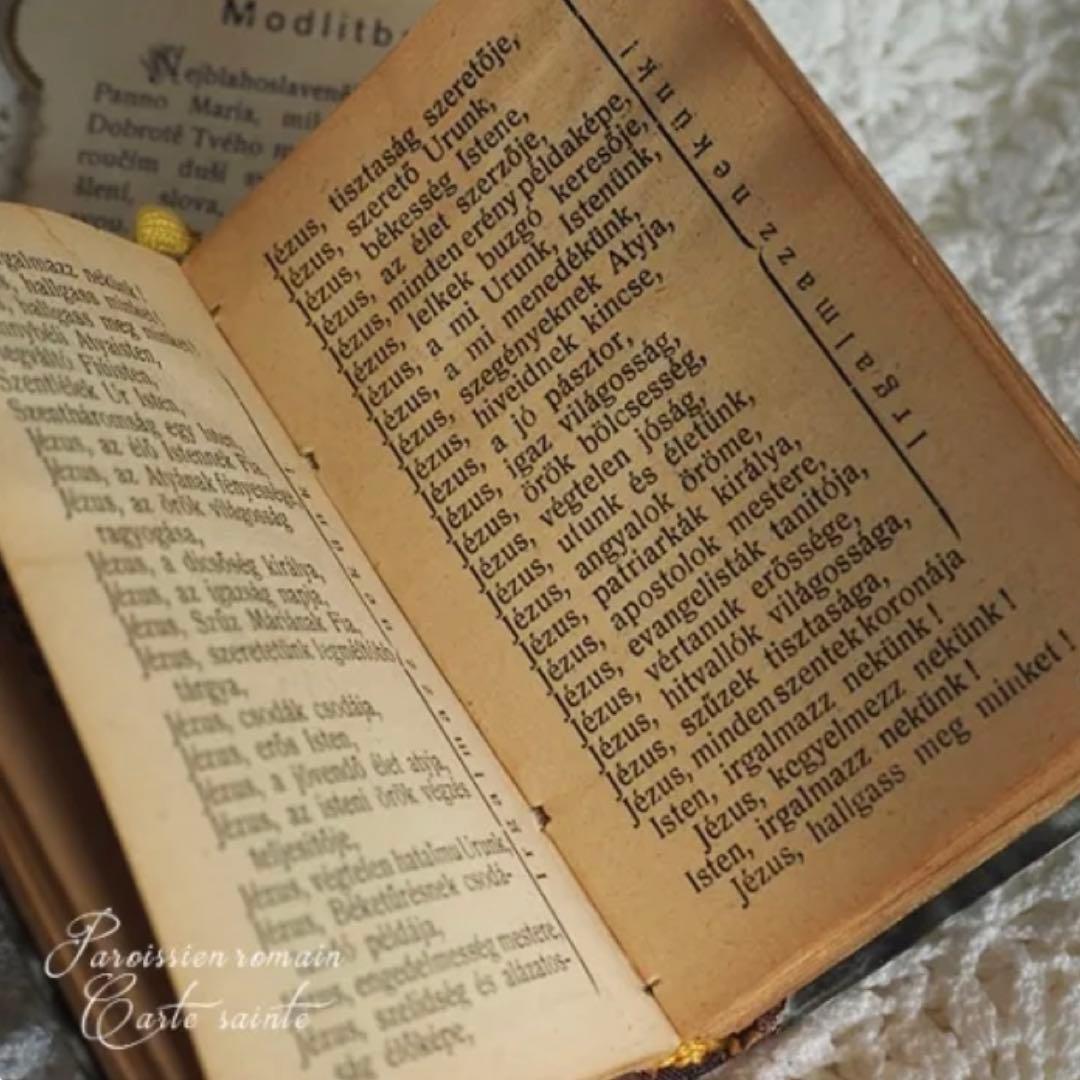 Modlitb
Nejblahoslaven
Panno Maria, mil
Dobrotě Tvého m
roučím duši s
šleni, slova,
vou,
galmazz nekünk!
hallgass minket!
hallgass meg minket!
nnybéli Atyaisten,
egváltó Fiúisten,
Szentlélek Úr Isten,
Szentháromság egy Isten,
Jézus, az élő Istennek Fia,
Jézus, az Atyának fényessége
Jézus, az örök világosság
ragyogása,
Jézus, a dicsőség királya,
Jézus, az igazság napja,
Jézus, Szűz Máriának Fia,
Jézus, szeretetünk legméltóbb
tárgya,
Jézus, csodák csodája,
Jézus, erős Isten,
Jézus, a jövendő élet atyja,
Jézus, az isteni örök végzés
teljesítője,
Jézus, végtelen hatalmu Urunk,
Jézus, Béketűrésnek csodá-
ló példája,
Jézus, engedelmesség mestere,
Jézus, szelídség és alázatos-
ság élőképe,
Jézus, tisztaság szeretője,
Jézus, szerető Urunk,
Jézus, békesség Istene,
Jézus, az élet szerzője,
Jézus, minden erény példaképe,
Jézus, lelkek buzgó keresője,
Jézus, a mi Urunk, Istenünk,
Jézus, a mi menedékünk,
Jézus, szegényeknek Atyja,
Jézus, hiveidnek kincse,
Jézus, a jó pásztor,
Jézus, igaz világosság,
Jézus, örök bölcsesség,
Jézus, végtelen jóság,
Jézus, utunk és életünk,
Jézus, angyalok öröme,
Jézus, patriarkák királya,
Jézus, apostolok mestere,
Jézus, evangelisták tanitója,
Jézus, vértanuk erőssége,
Jézus, hitvallók világossága,
Jézus, szűzek tisztasága,
Jézus, minden szentek koronája
Irgalmazz nekünk!
Isten, irgalmazz nekünk!
Jézus, kegyelmezz nekünk!
Isten, irgalmazz nekünk!
Jézus, hallgass meg minket!
Paroissien romain
Carte sainte